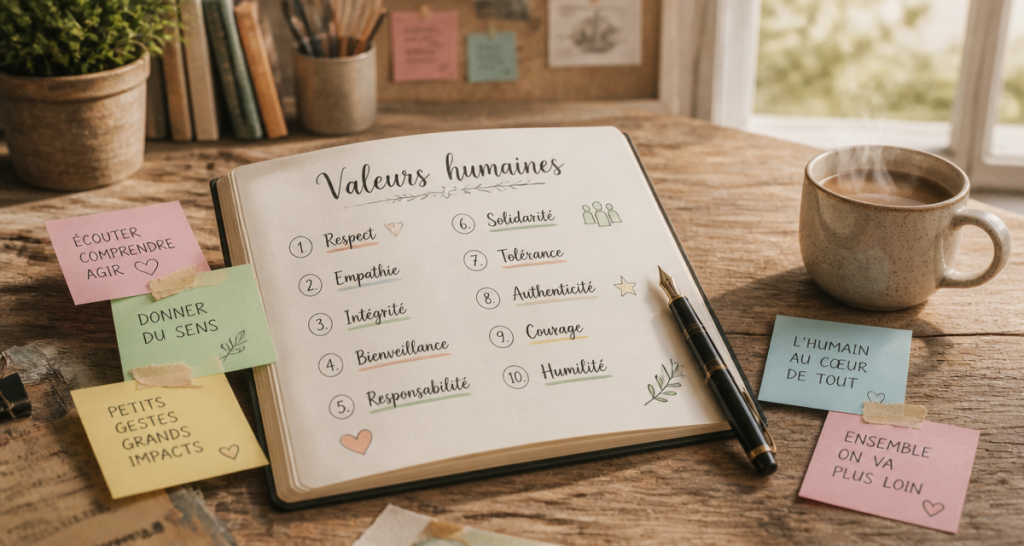 Valeurs humaines
1 Respect
2. Empathie
3. Intégrité
4. Bienveillance
5. Responsabilité
6. Solidarité
7. Tolérance
8. Authenticité
9. Courage
10. Humilité
ÉCOUTER
COMPRENDRE
AGIR
DONNER
DU SENS
PETITS
GESTES
GRANDS
IMPACTS
L'HUMAIN
AU CŒUR
DE TOUT
ENSEMBLE
ON VA
PLUS LOIN